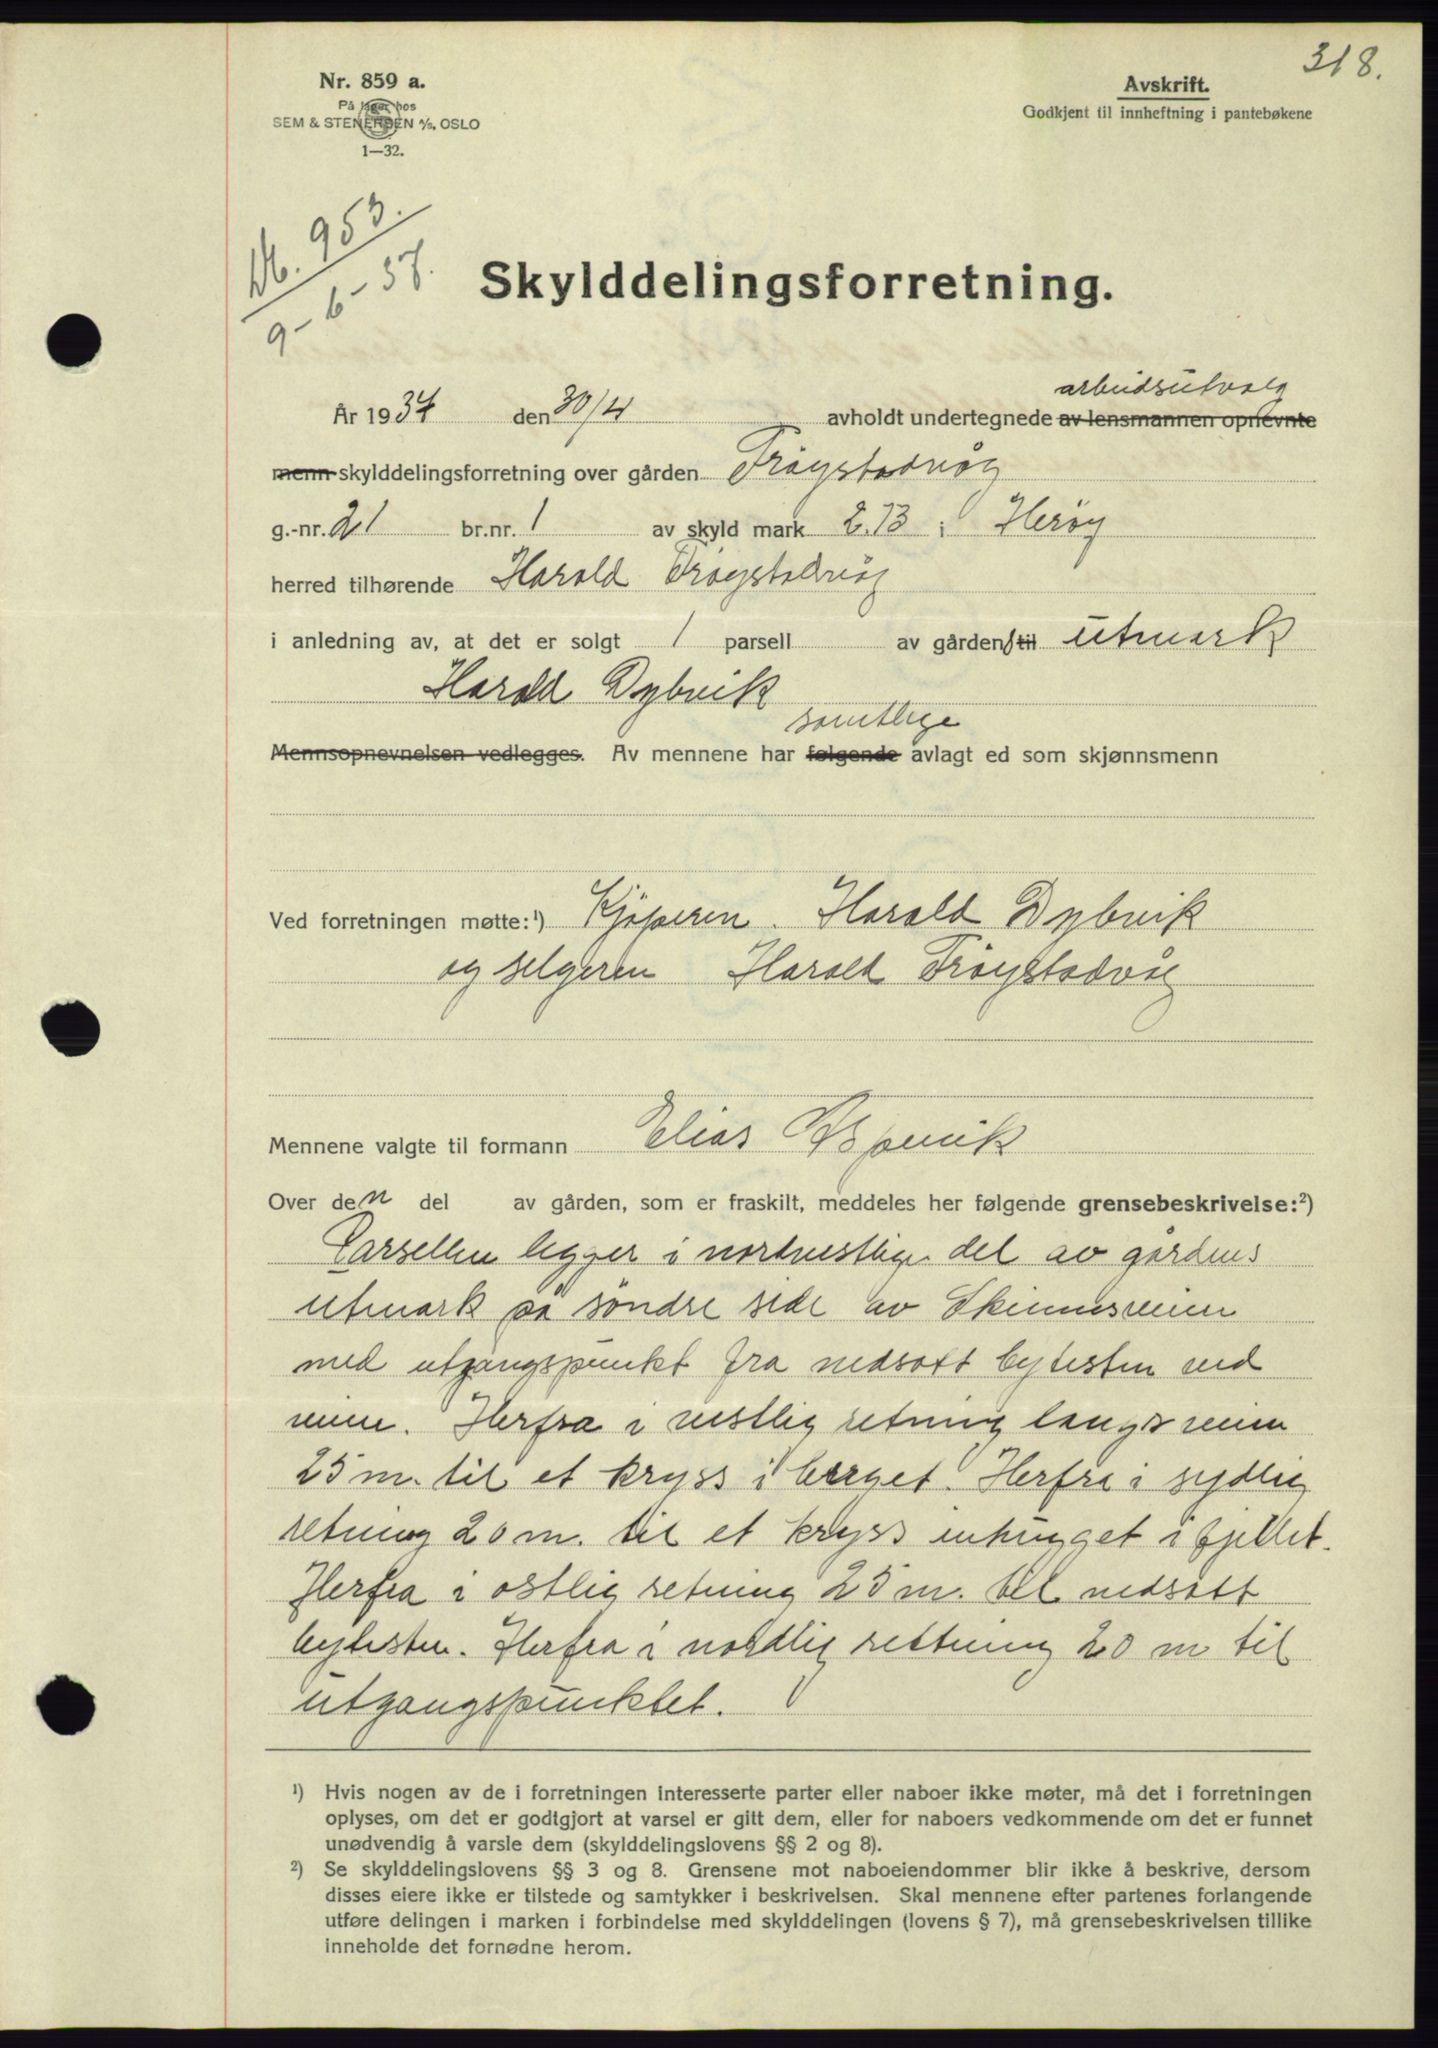 318.
Nr. 859 a.
På lager hos
SEM & STENERSEN A/S, OSLO
1—32.
Avskrift.
Godkjent til innheftning i pantebøkene
No. 953.
9-6-37.
Skylddelingsforretning.
arbeidsutvalg
År 1934 den 30/4 avholdt undertegnede av lensmannen opnevnte
menn skylddelingsforretning over gården Frøystadvåg
g.-nr. 21 br.nr. 1 av skyld mark 2.13 i Herøy
herred tilhørende Harald Frøystadvåg
i anledning av, at det er solgt 1 parsell av gårdens til utmark
Harald Dybvik
samtlige
Mennsopnevnelsen vedlegges. Av mennene har følgende avlagt ed som skjønnsmenn
Ved forretningen møtte:¹) Kjøperen. Harald Dybvik
og selgeren Harald Frøystadvåg
Mennene valgte til formann Elias Aspevik
Over den del av gården, som er fraskilt, meddeles her følgende grensebeskrivelse:²)
Parsellen ligger i nordvestlige del av gårdens
utmark på søndre side av
med utgangspunkt fra nedsatt bytesten ved
veien. Herfra i vestlig retning langs veien
25 m. til et kryss i berget. Herfra i sydlig
retning 20 m. til et kryss inhugget i fjellet.
Herfra i østlig retning 25 m. til nedsatt
bytesten. Herfra i nordlig rettning 20 m til
utgangspunktet.
¹) Hvis nogen av de i forretningen interesserte parter eller naboer ikke møter, må det i forretningen
oplyses, om det er godtgjort at varsel er gitt dem, eller for naboers vedkommende om det er funnet
unødvendig å varsle dem (skylddelingslovens §§ 2 og 8).
²) Se skylddelingslovens §§ 3 og 8. Grensene mot naboeiendommer blir ikke å beskrive, dersom
disses eiere ikke er tilstede og samtykker i beskrivelsen. Skal mennene efter partenes forlangende
utføre delingen i marken i forbindelse med skylddelingen (lovens § 7), må grensebeskrivelsen tillike
inneholde det fornødne herom.